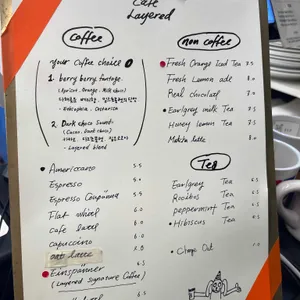 Cafe
Layered
Coffee
Your Coffee choice
1. berry berry funtage.
(Apricot, Orange, Milk choco)
- Ethiopia, Costarica
2. Dark choco Sounds
(Cacao, Dark choco)
- Layered blend
Americano 5.5
Espresso 5.0
Espresso Conpanna 5.5
Flat whitel 6.0
cafe latel 6.0
capuccino 6.0
oat latte
Einspänner 6.5
(Layered Signature Coffee)
non coffee
Fresh Orange Iced Tea 7.5
Fresh Lemon ade 8.0
Real chocolad 7.0
Earlgrey milk Tea 7.5
Honey lemon Tea 7.5
Matcha latte
Tea
Earlgrey Tea
Rooibos Tea
peppermint Tea
Hibiscus Tea
Out